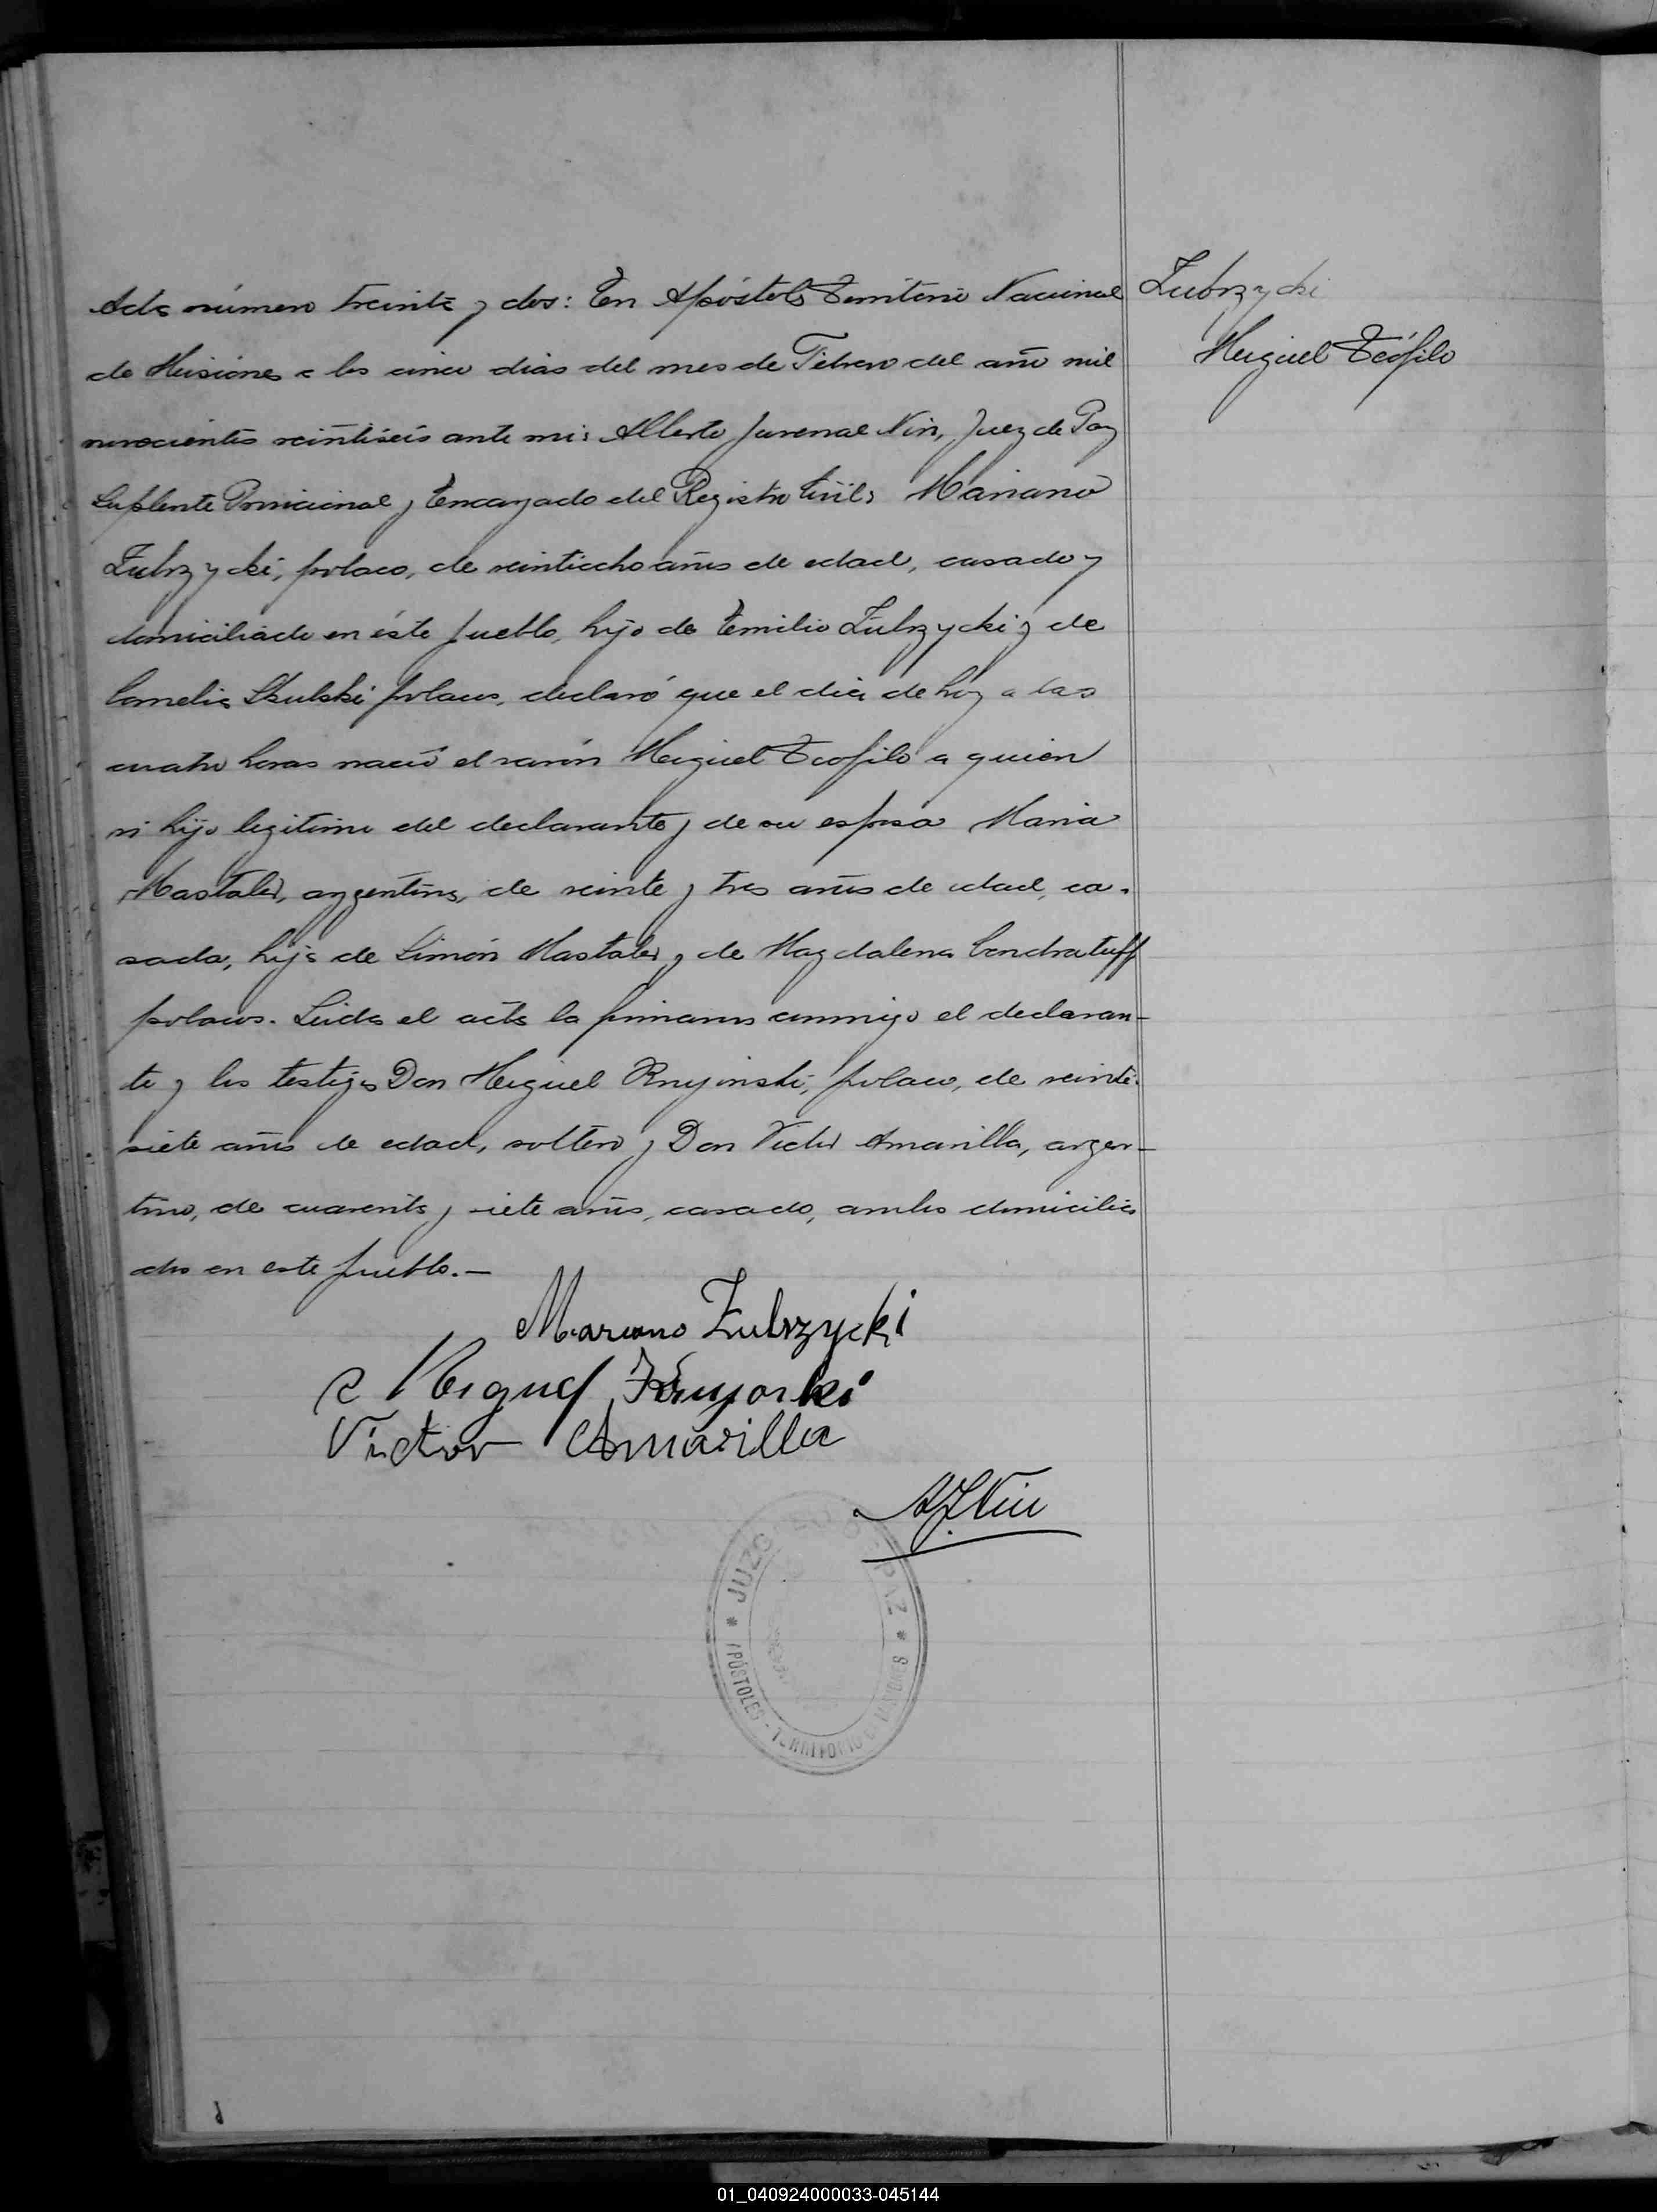 Acta número treinta y dos: En Apóstoles Territorio Nacional
de Misiones a los cinco dias del mes de Febrero del año mil
novecientos veintiseis ante mi: Alberto Juvenal Nin, Juez de Paz
Suplente Provicional y Encargado del Registro Civil: Mariano
Zubrzycki, polaco, de veintiocho años de edad, casado y
domiciliado en éste pueblo, hijo de Emilio Zubrzycki y de
Cornelia Skulski polacos, declaró que el dia de hoy a las
cuatro horas nació el varón Miguel Teofilo a quien
vi hijo legitimo del declarante y de su esposa Maria
Mastaler, argentina, de veinte y tres años de edad, ca-
sada, hija de Simón Mastaler y de Magdalena Condratuff
polacos. Leida el acta la firmaron conmigo el declaran-
te y los testigos Don Miguel polaco, de veinti-
siete años de edad, soltero y Don Victor Amarilla, argen-
tino, de cuarenta y siete años, casado, ambos domicilia
dos en este pueblo.—
Zubrzycki
Miguel Teófilo
Mariano Zubrzycki
Miguel
Victor Amarilla
AJNin
JUZGADO DE PAZ
* APÓSTOLES - TERRITORIO DE MISIONES *
01_040924000033-045144